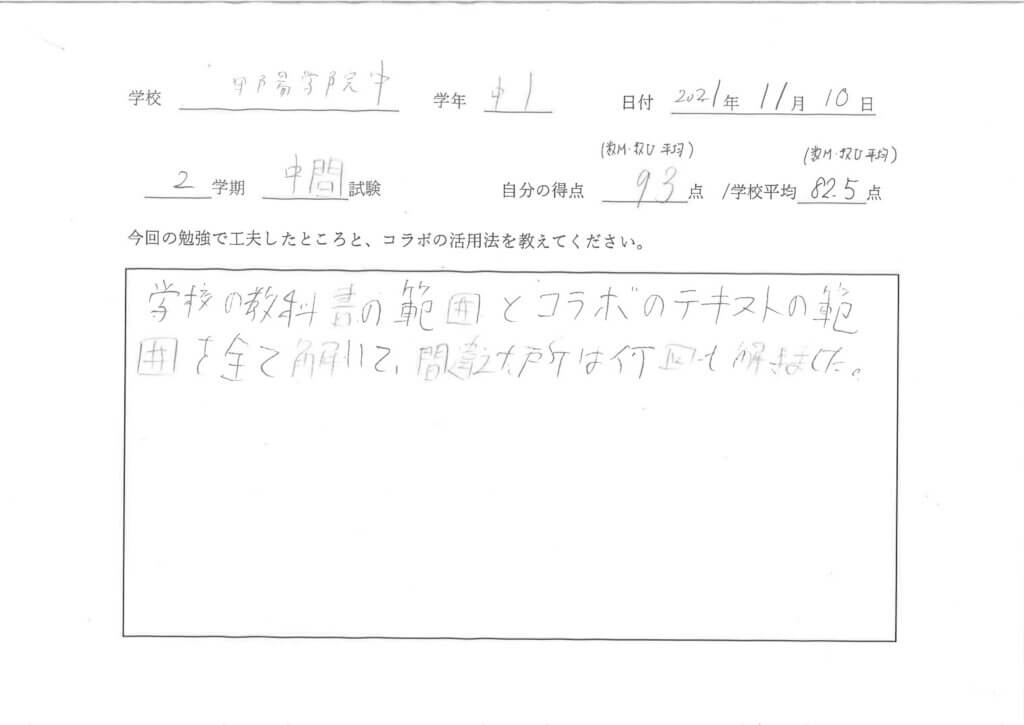 学校 甲陽学院中 学年 中1 日付 2021年 11月 10日
(数M・数U 平均) (数M・数U 平均)
2 学期 中間 試験 自分の得点 93 点 /学校平均 82.5 点
今回の勉強で工夫したところと、コラボの活用法を教えてください。
学校の教科書の範囲とコラボのテキストの範
囲を全て解いて、間違えた所は何回も解きました。